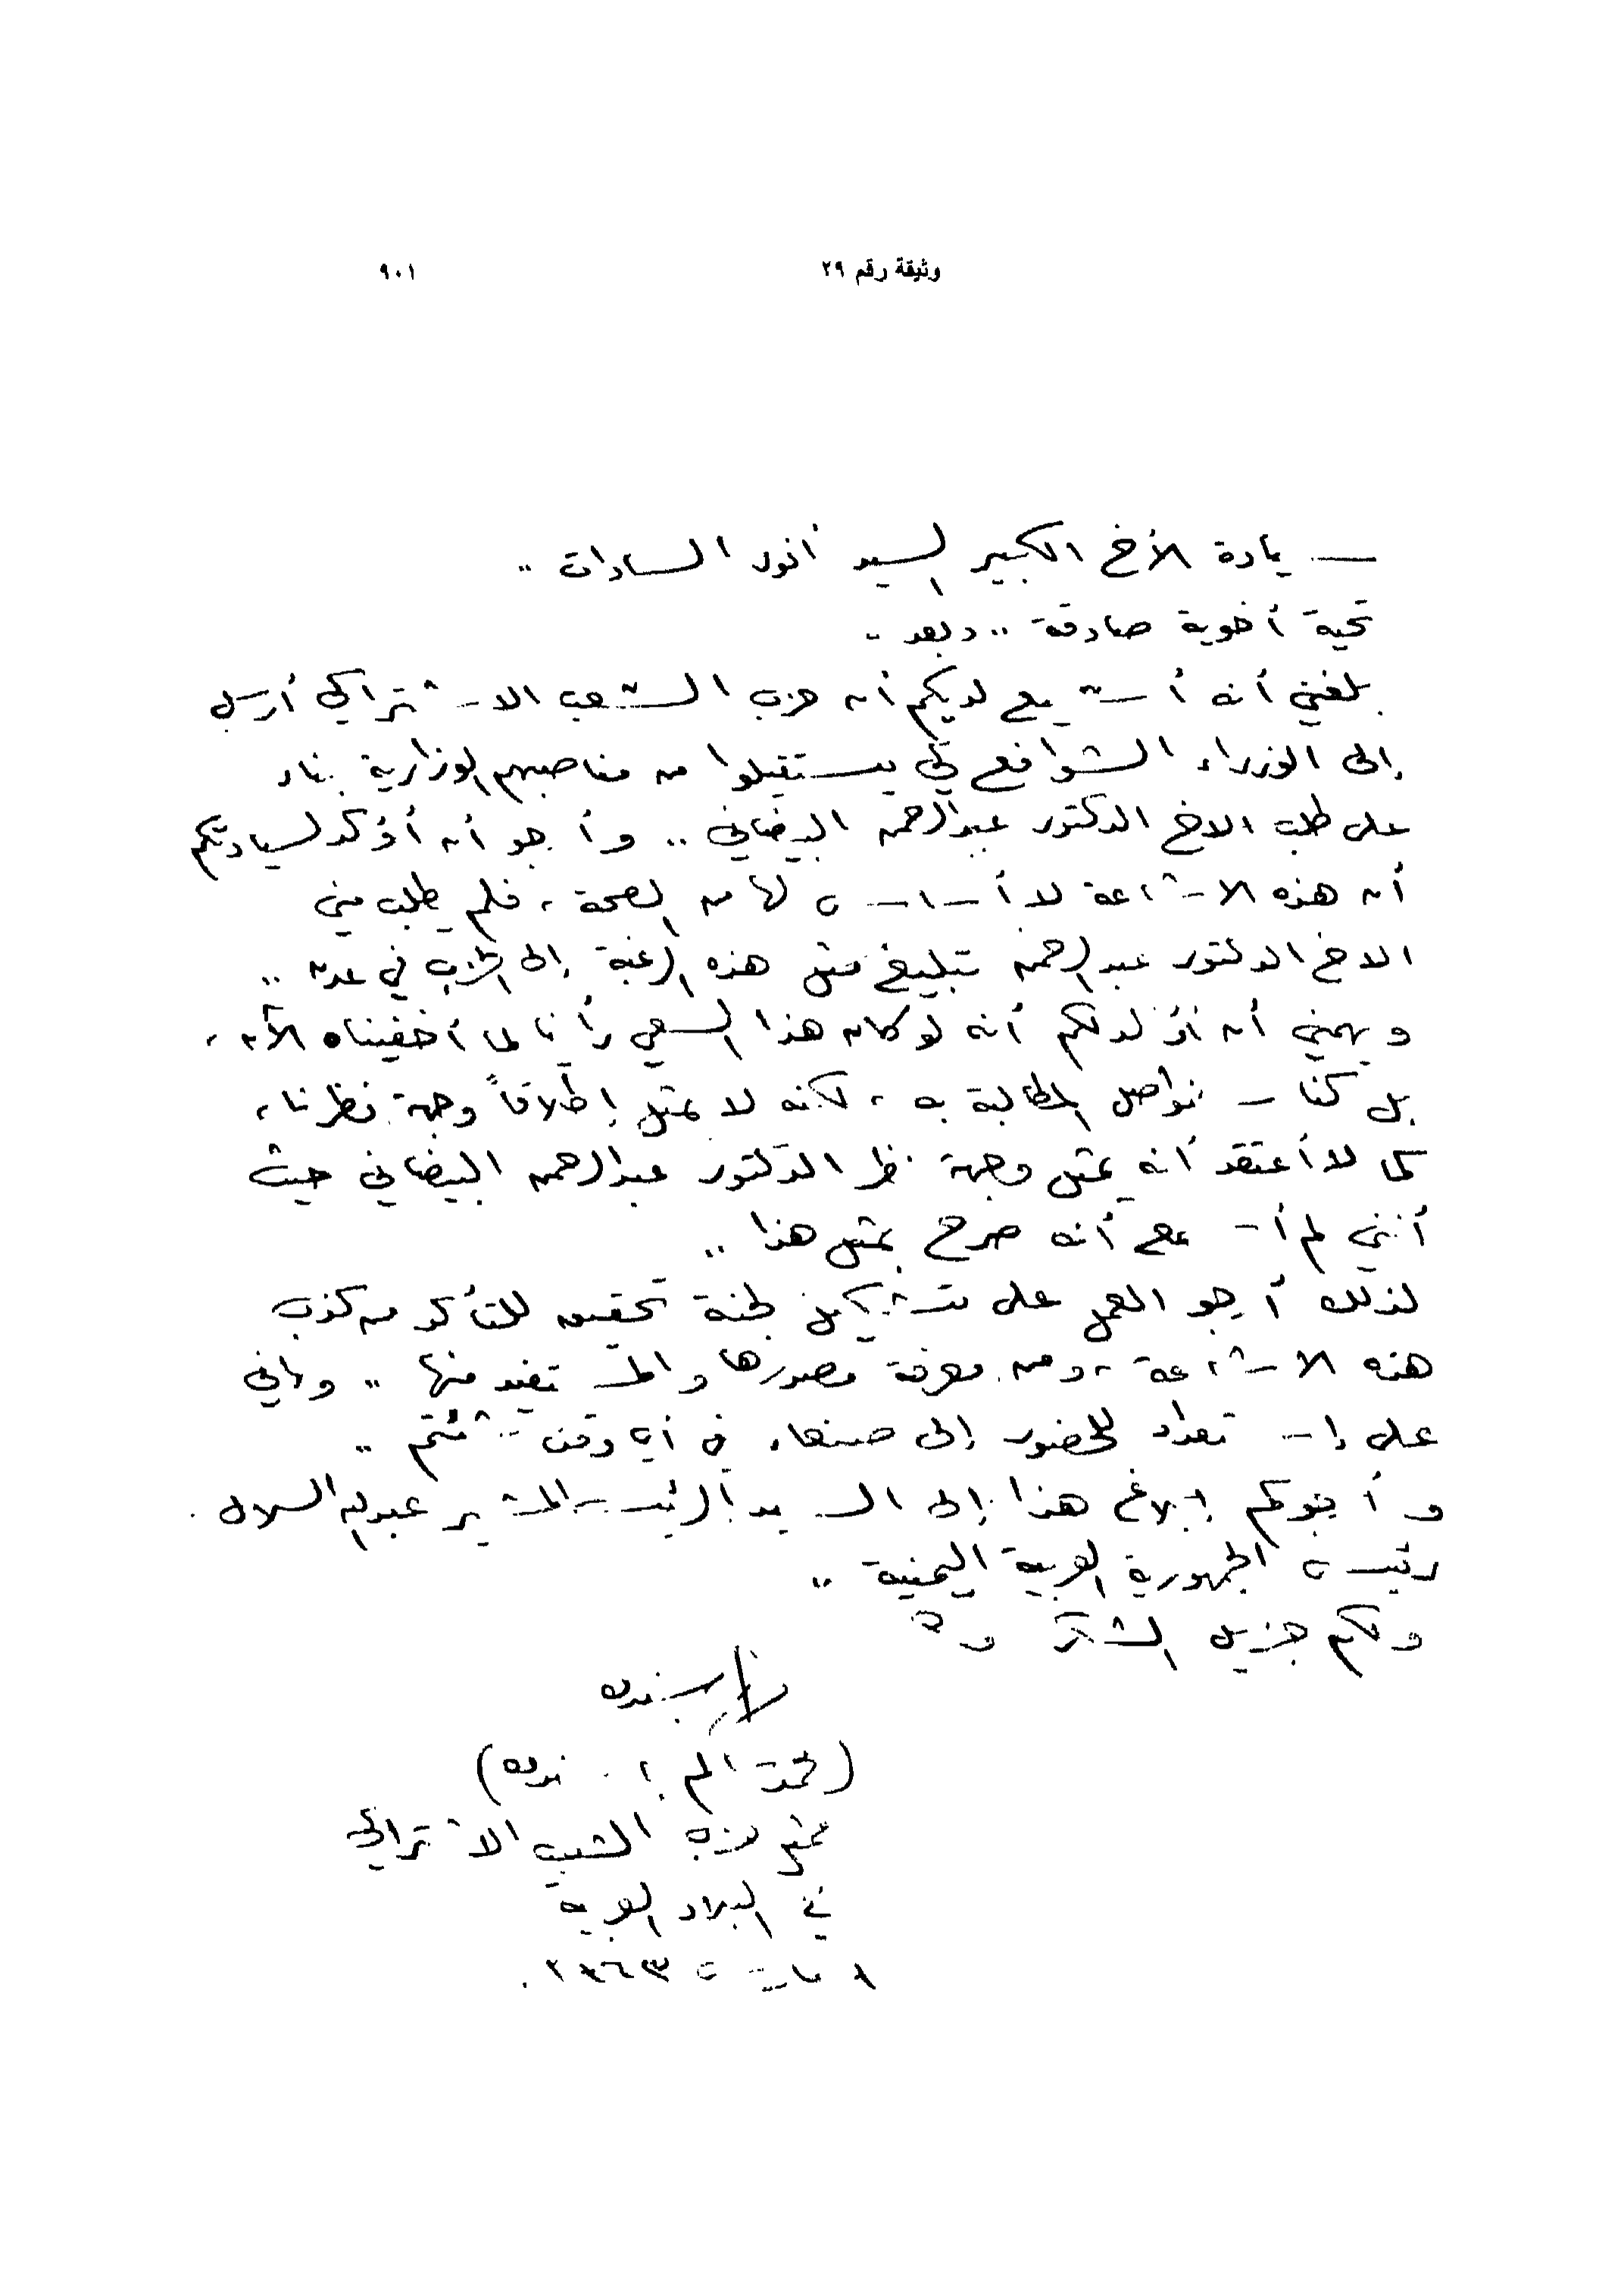 وثيقة رقم ٢٩
٩٠١
سيادة الأخ الكبير السيد أنور السادات ..
تحية أخوية صادقة .. وبعد ..
بلغني أنه أشيع لديكم أن حزب الشعب الاشتراكي أرسل
إلى الوزراء الشوافع لكي يستقيلوا من مناصبهم الوزارية بناء
على طلب الاخ الدكتور عبدالرحمن البيضاني .. وأرجو أن أؤكد لسيادتكم
أن هذه الاشاعة لا أساس لها من الصحة ، فلم يطلب مني
الاخ الدكتور عبدالرحمن تبليغ مثل هذه الرغبة إلى الحزب في عدن ..
ويهمني أن أؤكد لكم أنه لو كان هذا السعي رأينا لما أخفيناه الآن ،
بل كنا نواصل المطالبة به ، لكنه لا يمثل إطلاقاً وجهة نظرنا ،
كما لا أعتقد أنه يمثل وجهة نظر الدكتور عبدالرحمن البيضاني حيث
أنني لم أسمع أنه صرح بمثل هذا ..
لذلك أرجو العمل على تشكيل لجنة تحقيق للتأكد من كذب
هذه الاشاعة ، ومن معرفة مصدرها والمستفيد منها .. وإني
على إستعداد للحضور إلى صنعاء في أي وقت شئتم ..
وأرجوكم إبلاغ هذا إلى السيد الرئيس المشير عبدالله السلال
رئيس الجمهورية العربية اليمنية ..
ولكم جزيل الشكر و
باسندوه
(محمد سالم باسندوه)
ممثل حزب الشعب الاشتراكي
في البلاد العربية
مارس ١٩٦٣